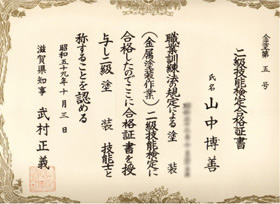 金塗第 五 号
二級技能検定合格証書
氏名 山中博善
職業訓練法規定による 塗 装
(金属塗装作業)二級技能検定に
合格したのでここに合格証書を授
与し二級 塗 装 技能士と
称することを認める
昭和五十九年十月三日
滋賀県知事 武村正義